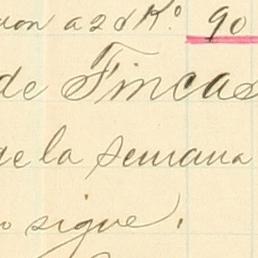 a 2 d K.º 90
de Fincas
de la semana
sigue,